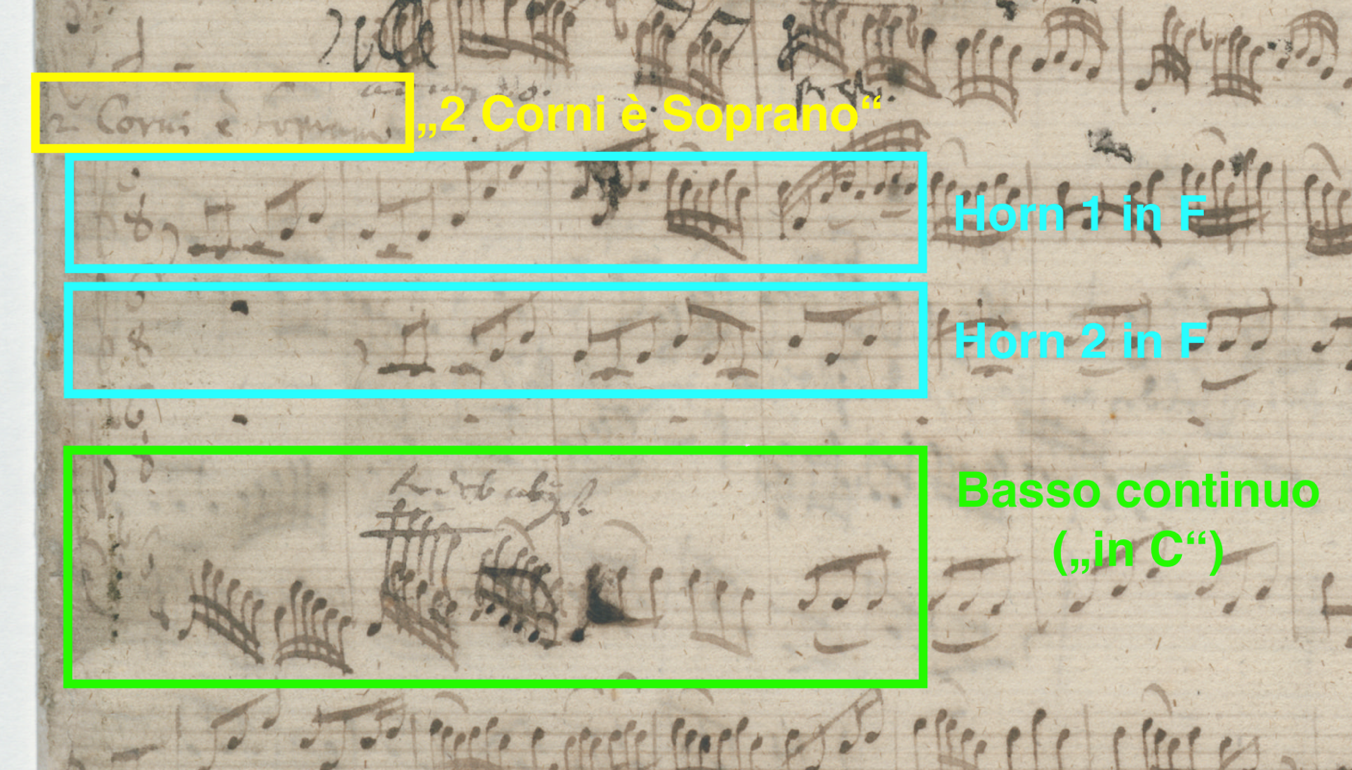 2 Corni è Soprano
„2 Corni è Soprano“
Horn 1 in F
Horn 2 in F
Basso continuo
(„in C“)